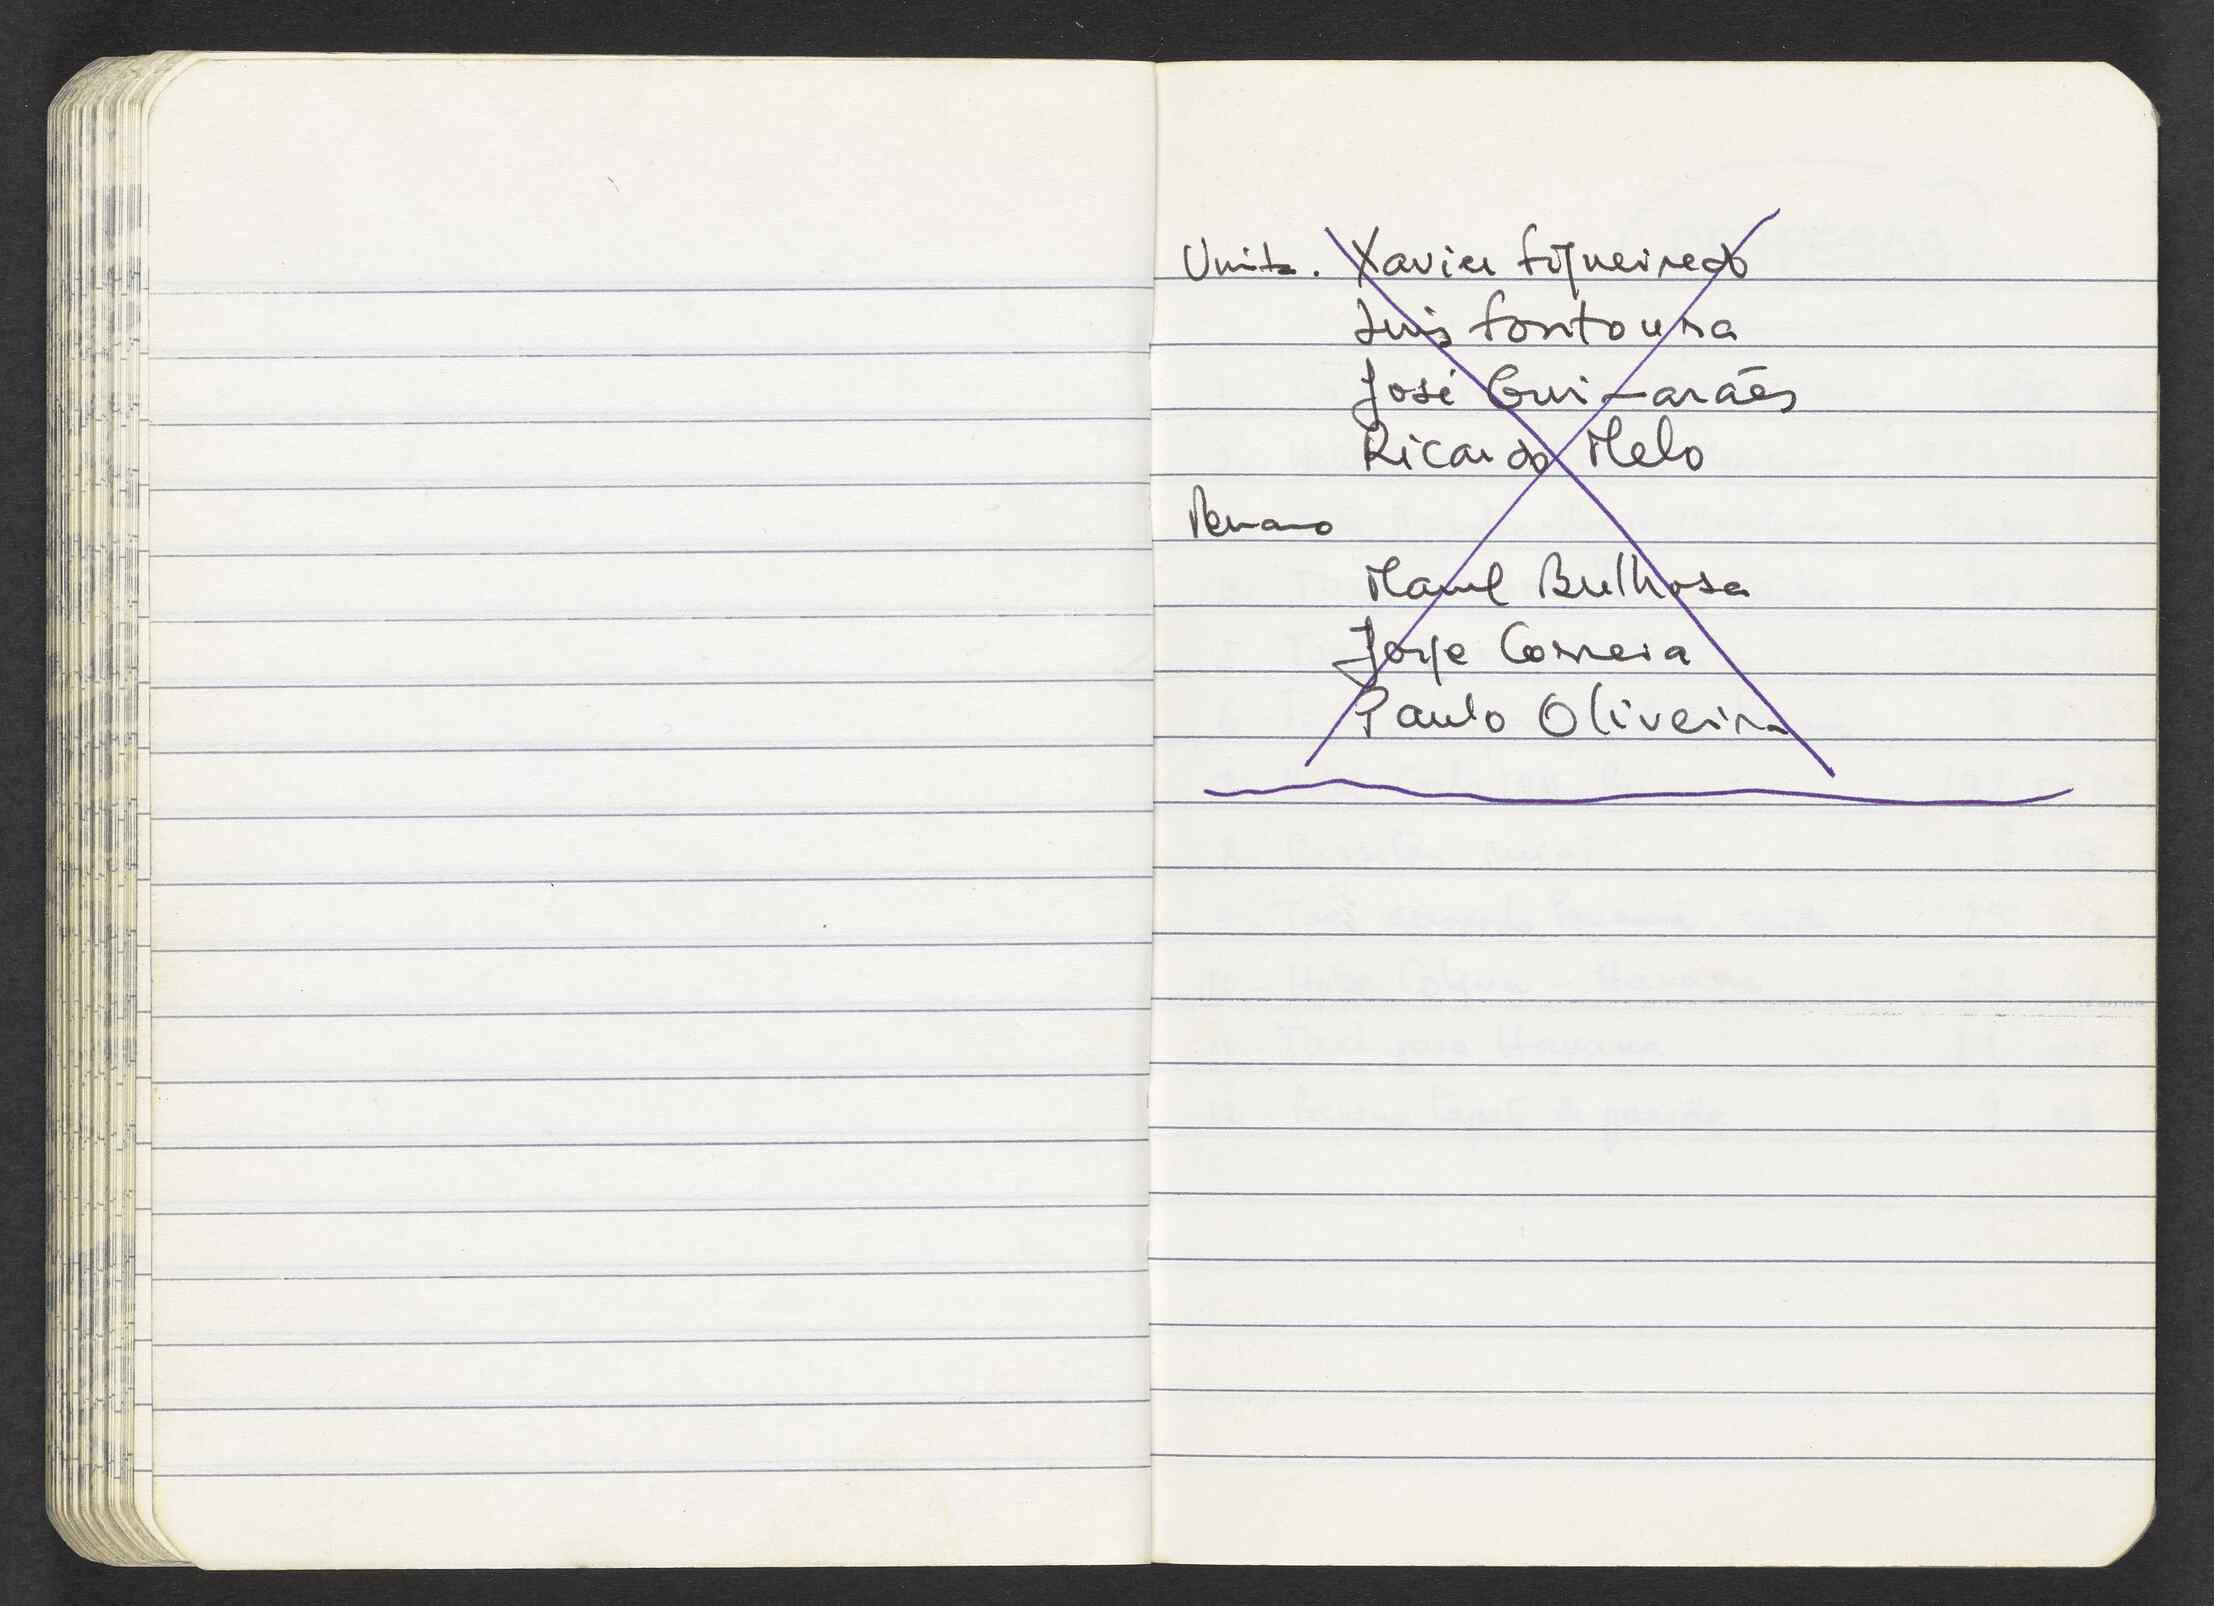 Unita. Xavier Figueiredo
Luis Fontoura
José Guimarães
Ricardo Melo
Manuel Bulhosa
Jorge Correia
Paulo Oliveira